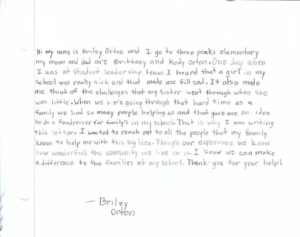 Hi my name is Briley Orton and I go to three peaks elementary
my mom and dad are Brittney and Kody Orton. One day when
I was at student leadership team I heard that a girl in my
school was really sick and that made me fill sad. It also made
me think of the challenges that my sister went through when she
was little. When we were going through that hard time as a
family we had so many people helping us and that gave me an idea
to do a fundraiser for family's in my school. That is why I am writing
this letter. I wanted to reach out to all the people that my family
know to help me with this big idea. Through our experience we know
how wonderfull the community we live in is. I know we can make
a difference to the families at my school. Thank you for your help!
- Briley
Orton